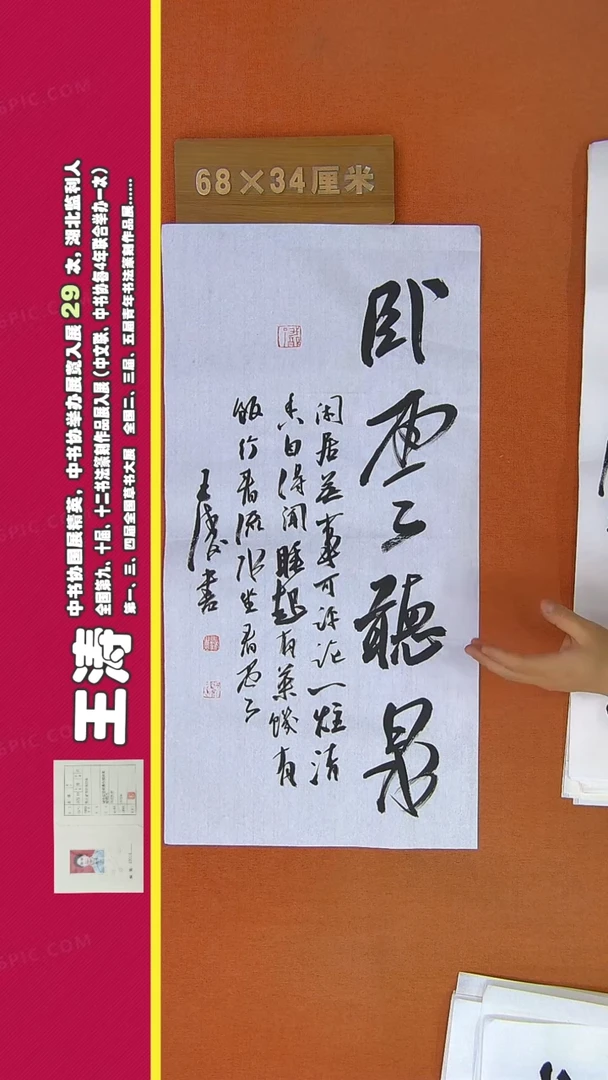 68×34厘米
卧雲聽泉
闲居无事可评论一炷清
香自得闻睡起有茶饥有
饭行看流水坐看雲
王涛書
王涛
中书协国展精英，中书协举办展览入展 29 次，湖北监利人
全国第九、十届、十二书法篆刻作品展入展（中文联、中书协每4年联合举办一次）
第一、三、四届全国草书大展 全国二、三届、五届青年书法篆刻作品展......